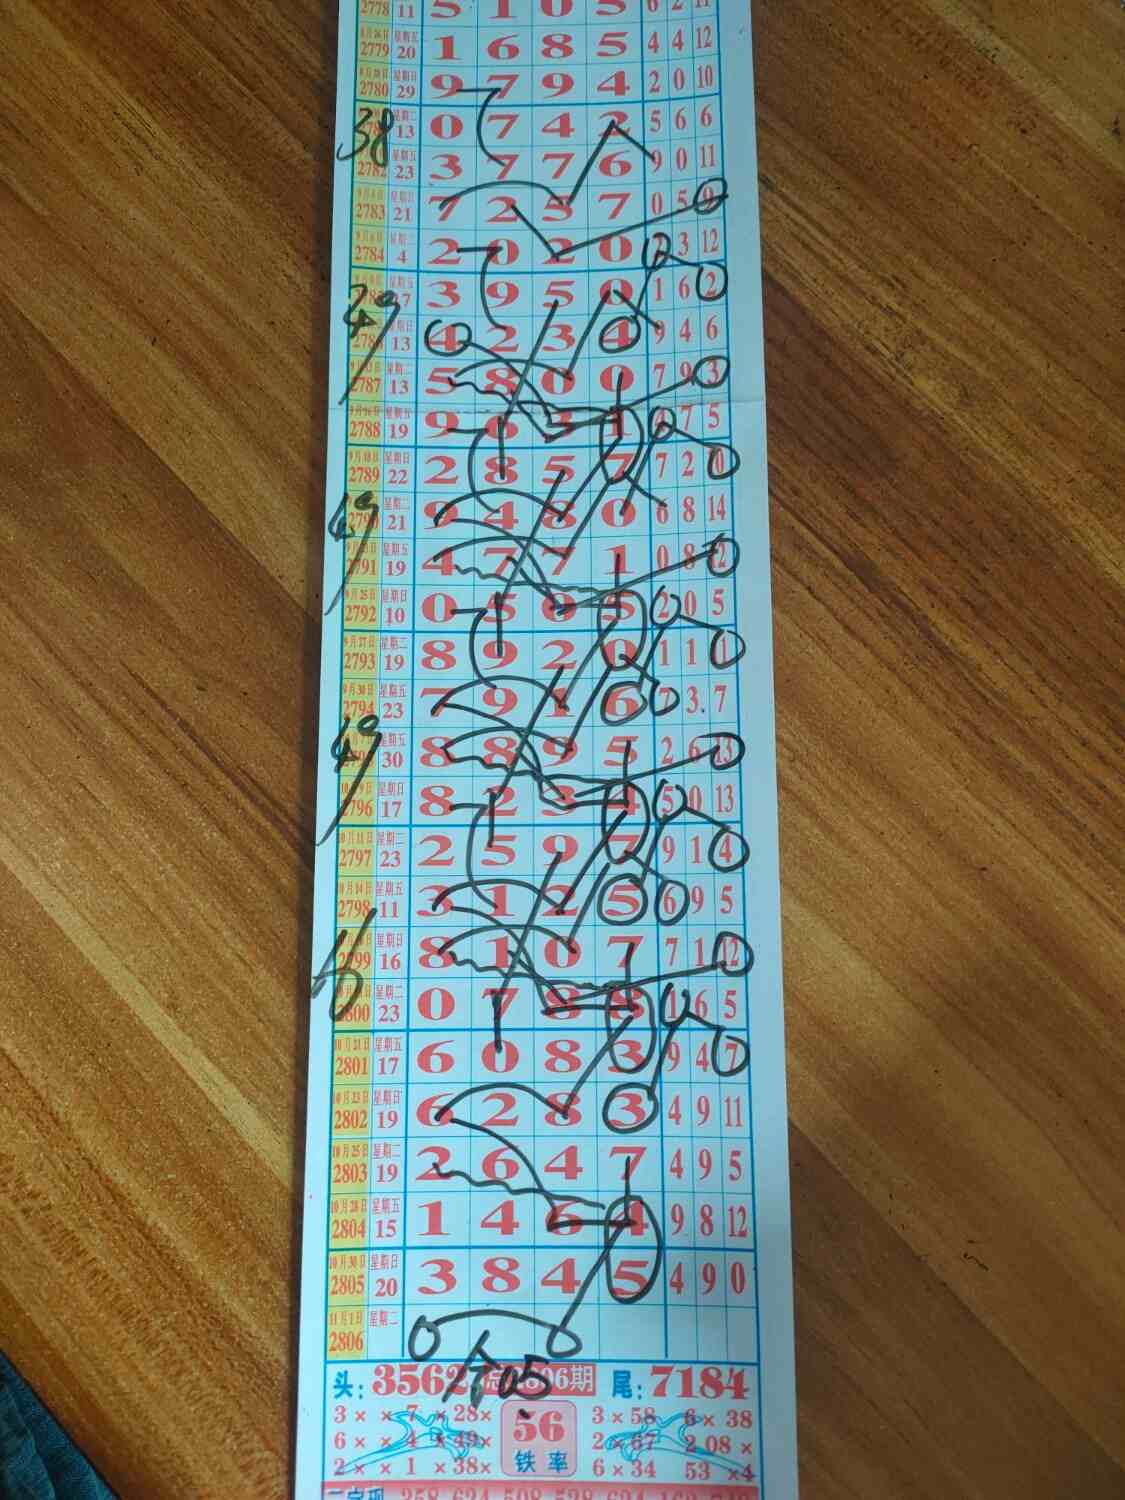 2778 11 5 1 0 5 6 2 11
8月26日 星期五 2779 20 1 6 8 5 4 4 12
8月28日 星期日 2780 29 9 7 9 4 2 0 10
星期二 13 0 7 4 5 6 6
38
星期五 2782 23 3 7 7 6 9 0 11
9月4日 星期日 2783 21 7 2 5 7 0 5 9
9月6日 星期二 2784 4 2 0 2 0 3 12
星期五 3 9 5 0 1 6 2
49
星期日 13 4 2 3 4 9 4 6
星期二 2787 13 5 8 0 0 7 9 3
星期五 2788 19 9 6 3 1 7 5
9月18日 星期日 2789 22 2 8 5 7 7 2 0
星期二 21 9 4 8 0 6 8 14
49
星期五 2791 19 4 7 7 1 0 8 12
9月25日 星期日 2792 10 0 5 0 5 2 0 5
9月27日 星期二 2793 19 8 9 2 0 1 1 1
9月30日 星期五 2794 23 7 9 1 6 7 3 7
星期五 30 8 8 9 5 2 6 13
49
星期日 2796 17 8 2 3 4 5 0 13
10月11日 星期二 2797 23 2 5 9 7 9 1 4
10月14日 星期五 2798 11 3 1 2 5 6 9 5
星期日 2799 16 8 1 0 7 7 1 12
星期二 23 0 7 8 8 1 6 5
10月21日 星期五 2801 17 6 0 8 3 9 4 7
10月23日 星期日 2802 19 6 2 8 3 4 9 11
10月25日 星期二 2803 19 2 6 4 7 4 9 5
10月28日 星期五 2804 15 1 4 6 4 9 8 12
10月30日 星期日 2805 20 3 8 4 5 4 9 0
11月1日 星期二 2806
头: 3562 06期 尾: 7184
合05
3 × × 7 × 28× 56 3 × 58 6 × 38
6 × × 4 × 49× 铁率 2 × 67 2 08 ×
2 × × 1 × 38× 6 × 34 53 ×4